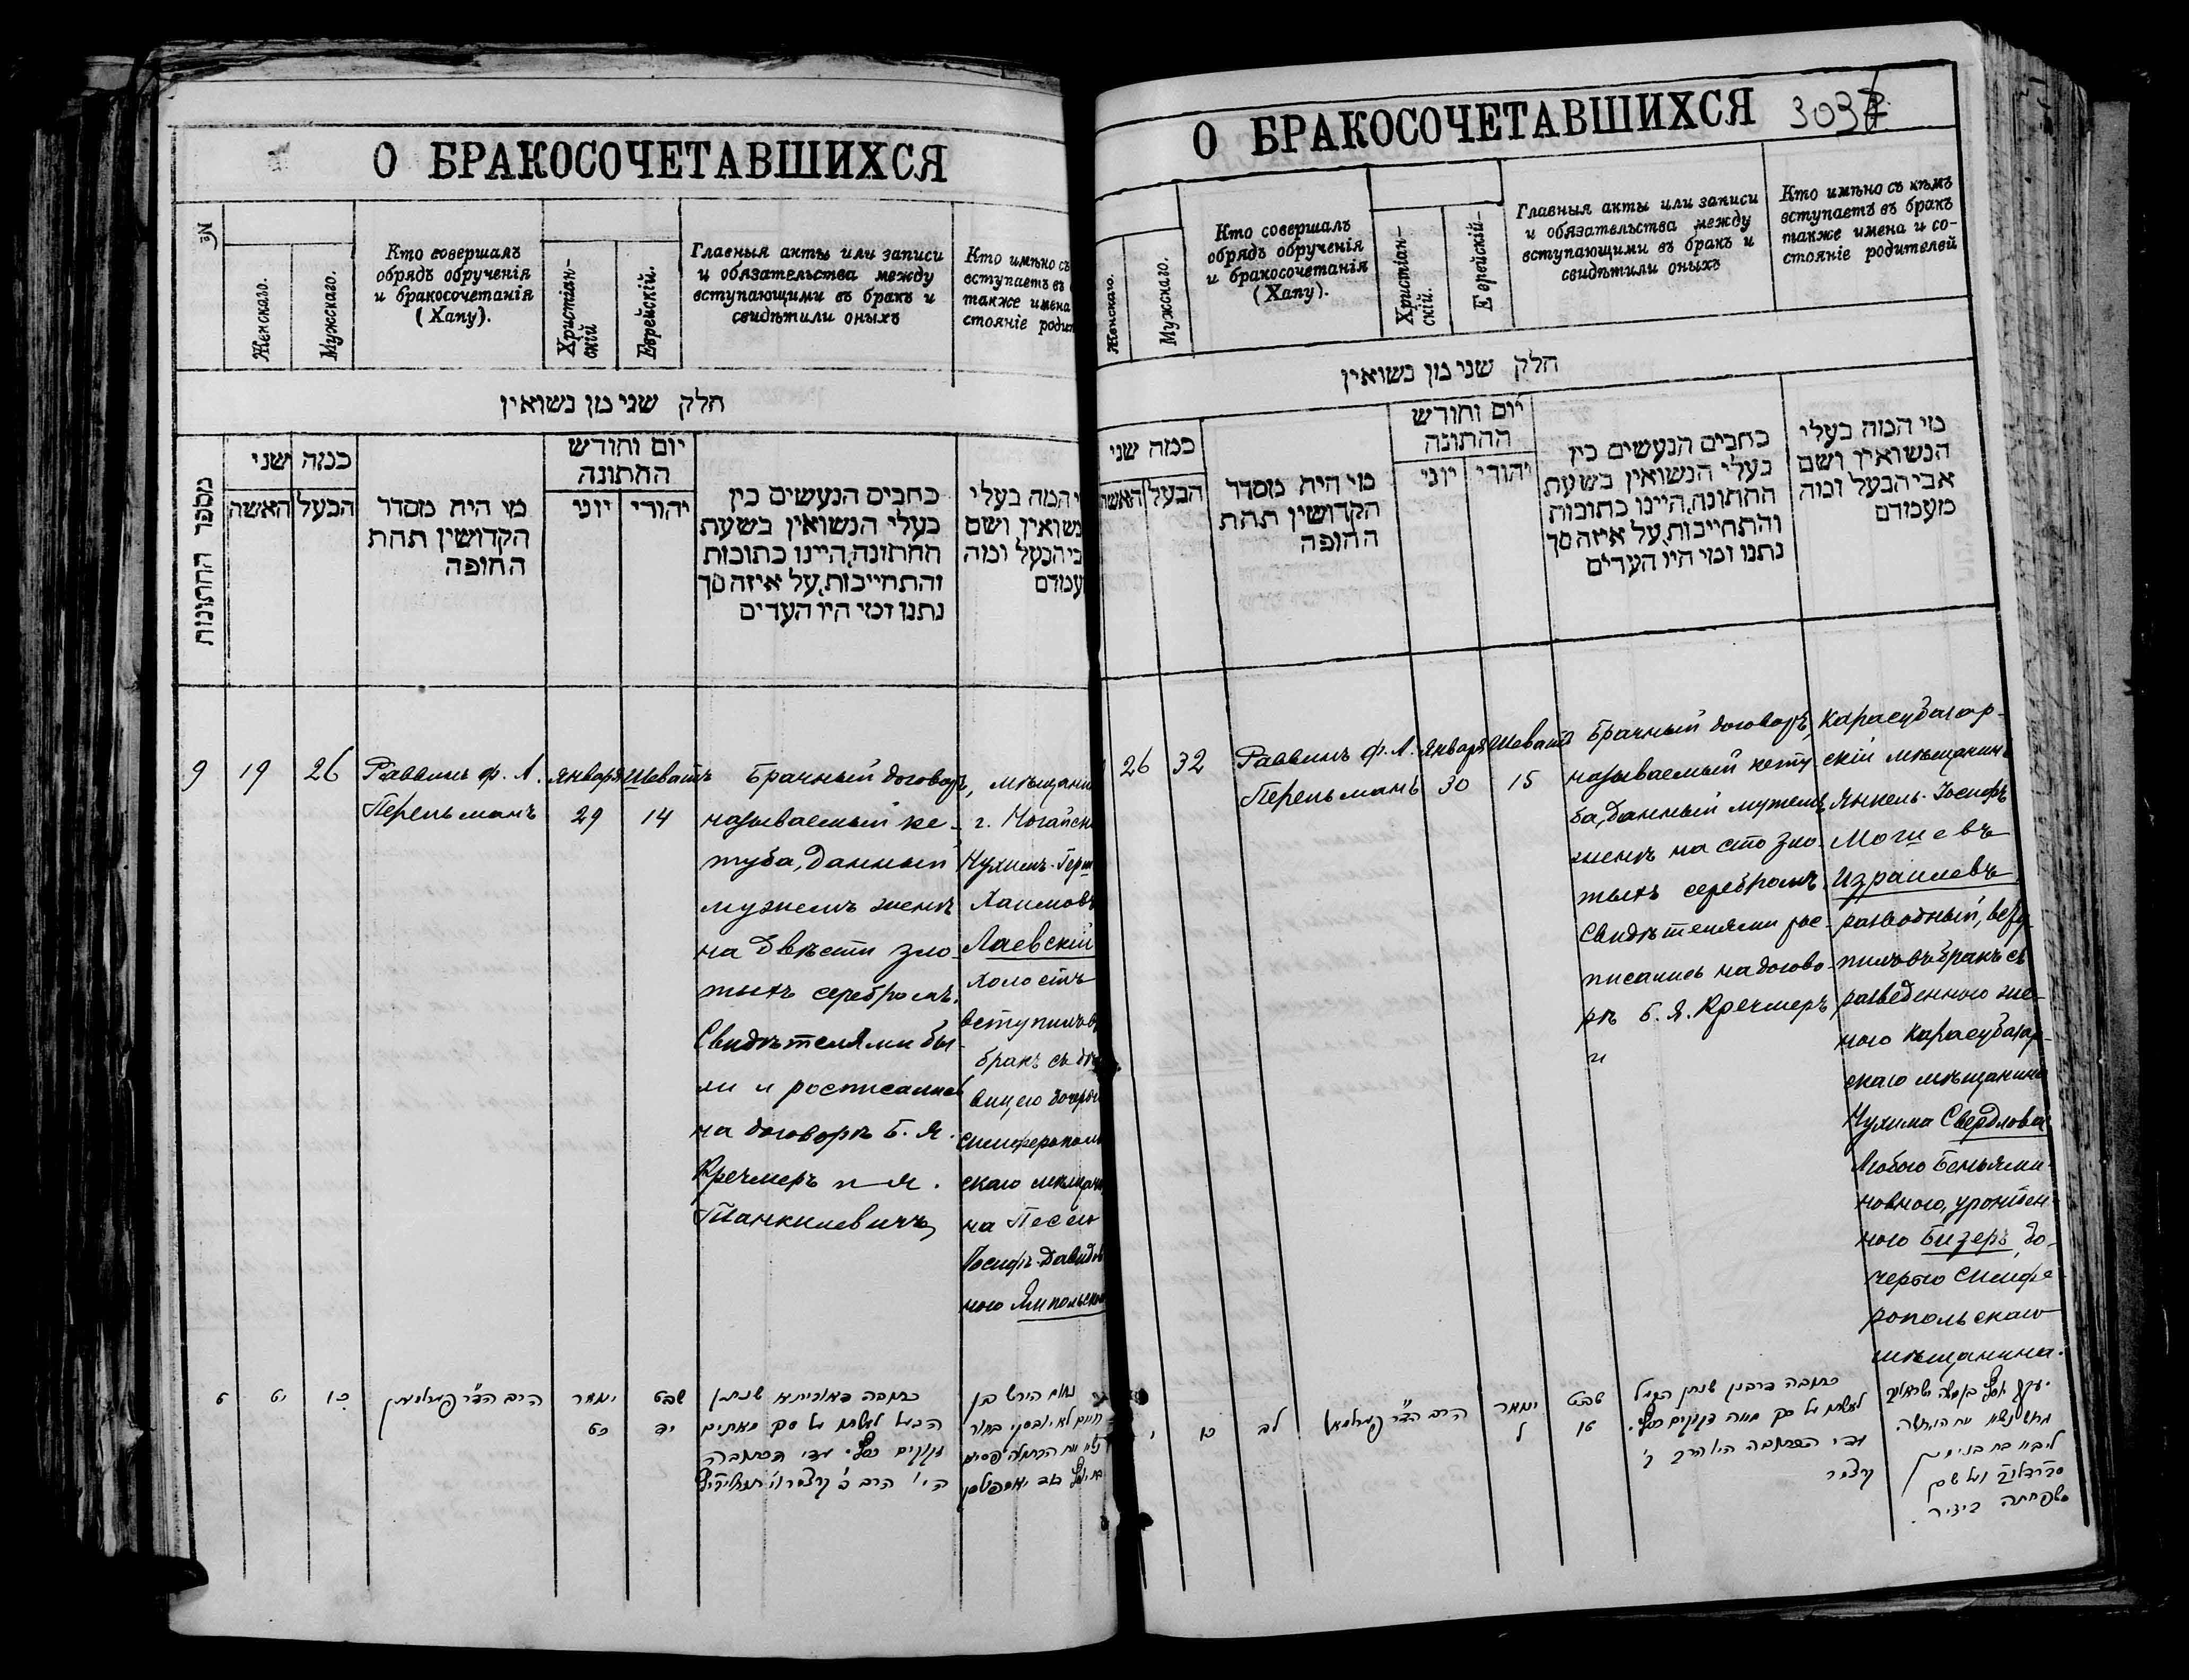 О БРАКОСОЧЕТАВШИХСЯ
№
Женскаго.
Мужскаго.
Кто совершалъ
обрядъ обрученія
и бракосочетанія
(Хапу).
Христіан-
скій
Еврейскій.
Главныя акты или записи
и обязательства между
вступающими въ бракъ и
свидѣтили оныхъ
Кто имѣно съ
вступаетъ въ
также имена
стояніе родит
חלק שני מן נשואין
מספר החתונות
כמה שני
האשה
הבעל
מי היה מסדר
הקדושין תחת
החופה
יום וחודש
החתונה
יוני
יהודי
כתבים הנעשים בין
בעלי הנשואין בשעת
החתונה, היינו כתובות
והתחייבות, על איזה סך
נתנו ומי היו העדים
י המה בעלי
נשואין ושם
בי הבעל ומה
עמדם
9
19
26
Раввинъ ф. А.
Перельманъ
Января
29
Шеватъ
14
Брачный договоръ,
называемый ке-
туба, данный
мужемъ женѣ
на двѣсти зло-
тыхъ серебромъ.
Свидѣтелями бы-
ли и росписались
на договорѣ Б. Я.
Кречмеръ и Я.
Танкилевичъ
мѣщани
г. Ногайск
Нухимъ-Герш
Хаимовъ
Лаевскій
холостъ
вступилъ въ
бракъ съ дѣ
вицею дочерью
симферополь
скаго мѣщани
на Песею
Іосифъ-Давидов
ною Ямпольскою
ט
יט
כו
הרב הד"ר פערלמאן
ינואר
כט
שבט
יד
כתבה דאוריתא שנתן
הבעל לאשתו על סך מאתים
זקוקים כסף. עדי הכתבה
О БРАКОСОЧЕТАВШИХСЯ
3037
Женскаго.
Мужскаго.
Кто совершалъ
обрядъ обрученія
и бракосочетанія
(Хапу).
Христіан-
скій.
Еврейскій-
Главныя акты или записи
и обязательства между
вступающими въ бракъ и
свидѣтили оныхъ
Кто имѣно съ кѣмъ
вступаетъ въ бракъ
также имена и со-
стояніе родителей
חלק שני מן נשואין
כמה שני
האשה
הבעל
מי היה מסדר
הקדושין תחת
החופה
יום וחודש
החתונה
יוני
יהודי
כתבים הנעשים בין
בעלי הנשואין בשעת
החתונה, היינו כתובות
והתחייבות, על איזה סך
נתנו ומי היו העדים
מי המה בעלי
הנשואין ושם
אבי הבעל ומה
מעמדם
26
32
Раввинъ ф. А.
Перельманъ
Января
30
Шеватъ
15
Брачный договоръ,
называемый кету-
ба, данный мужемъ
женѣ на сто зло-
тыхъ серебромъ.
Свидѣтелями рос-
писались на догово-
рѣ Б. Я. Кречмеръ
и
Карасубазар-
скій мѣщанинъ
Янкель-Іосифъ
Мошевъ
Израилевъ
разводный, всту-
пилъ въ бракъ съ
разведенною же-
ною Карасубазар-
скаго мѣщанина
Нухима Свердлова
Любою Беньями-
новною, урожден-
ною Бизеръ, до-
черью симфе-
ропольскаго
мѣщанина.
כו
לב
ינואר
ל
שבט
טו
כתבה דרבנן שנתן הבעל